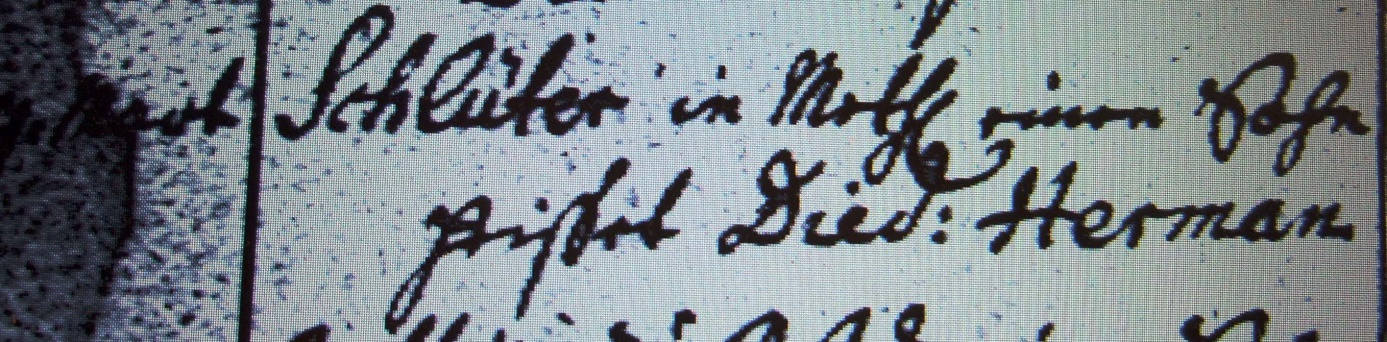 Schlüter in Moth einen Sohn
heißet Died: Herman